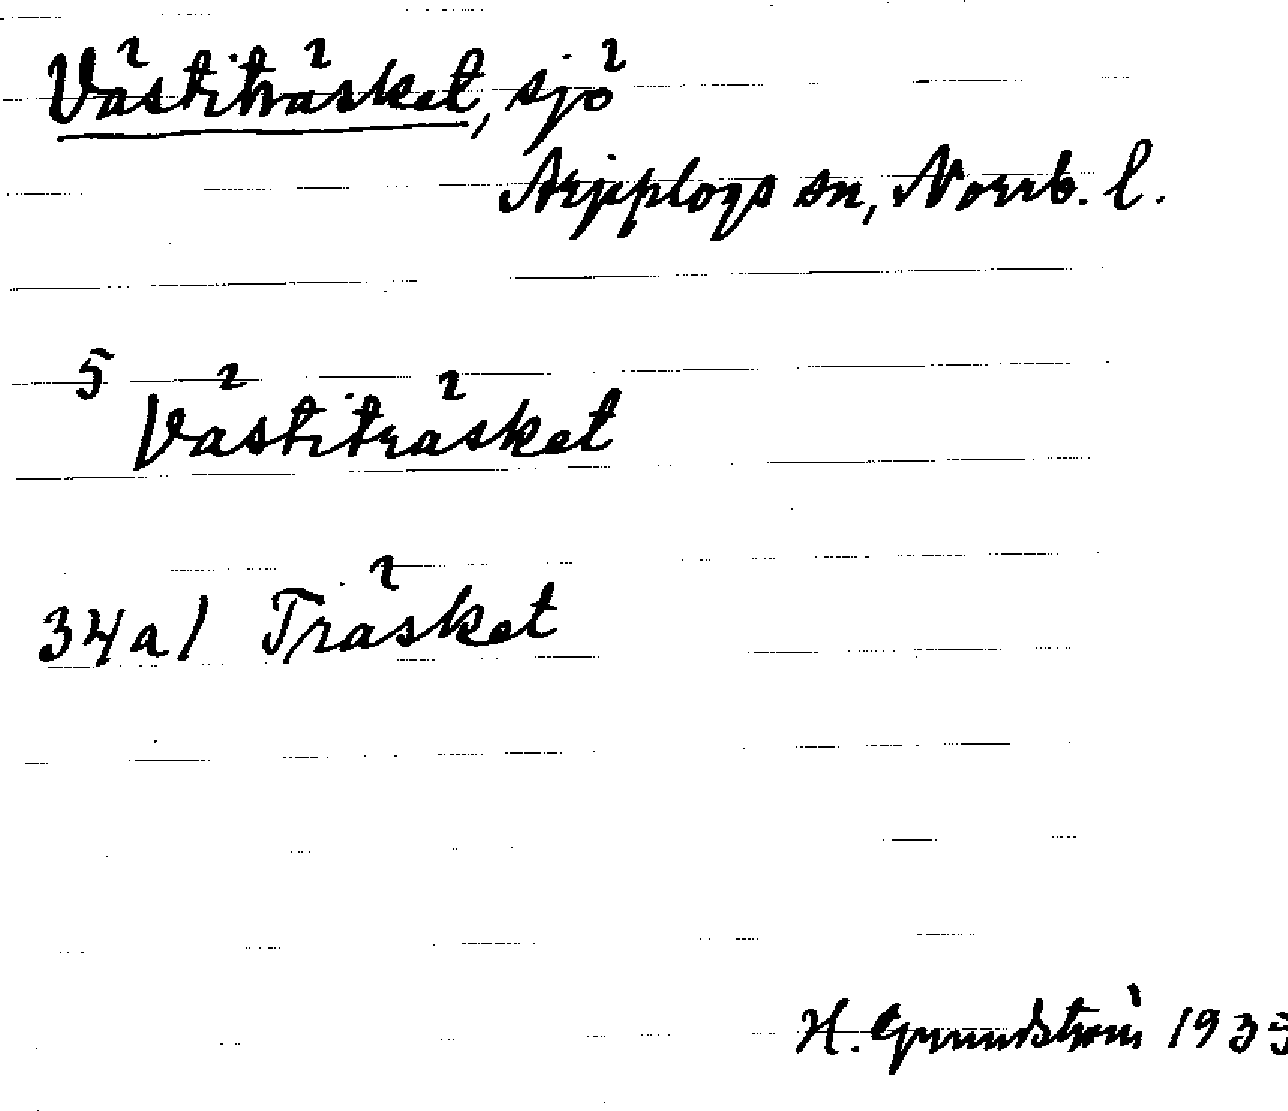 Västiträsket, sjö
Arjeplogs sn, Norrb. l.
5
Västiträsket
34a) Träsket
H. Grundström 1935